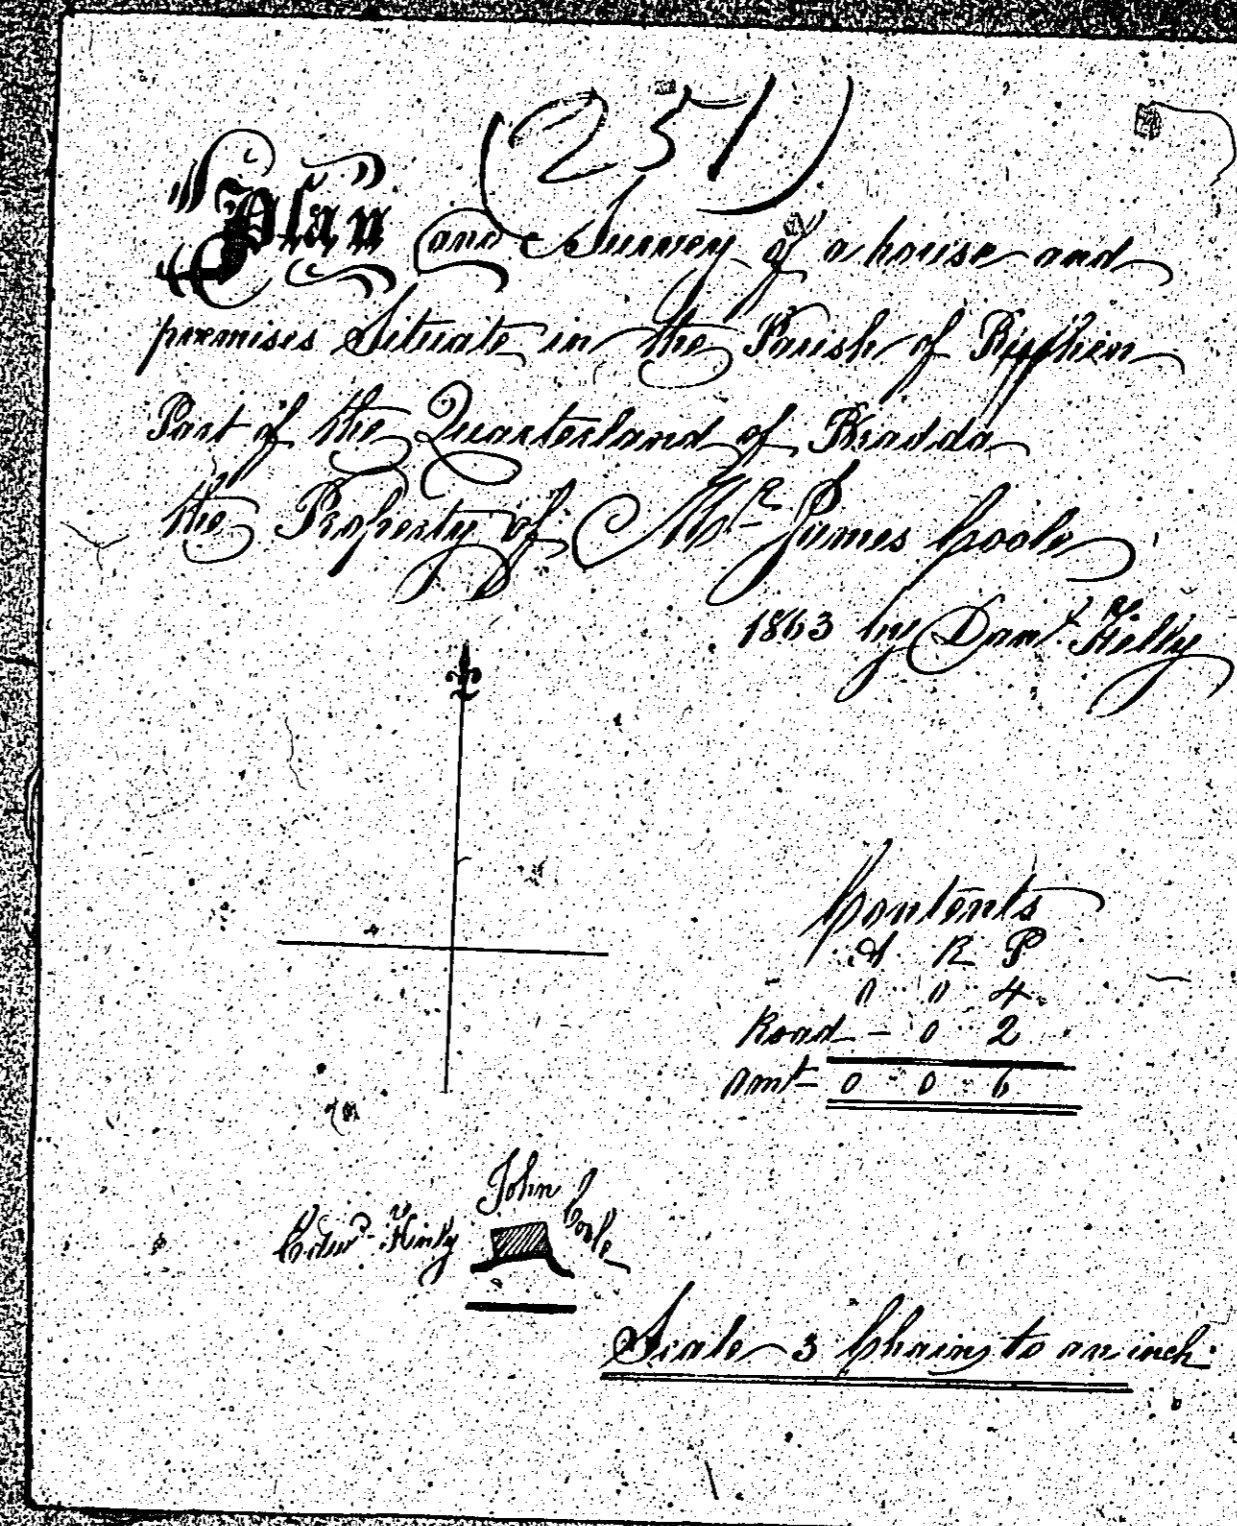 (251)
Plan and Survey of a house and
premises Situate in the Parish of Rushen
Part of the Quarterland of Bradda
the Property of Mr James Coole
1863 by Danl Kelly
Contents
A R P
0 0 4
Road - 0 2
Amt 0 0 6
John Coole
Edwd
Scale 3 Chains to an inch